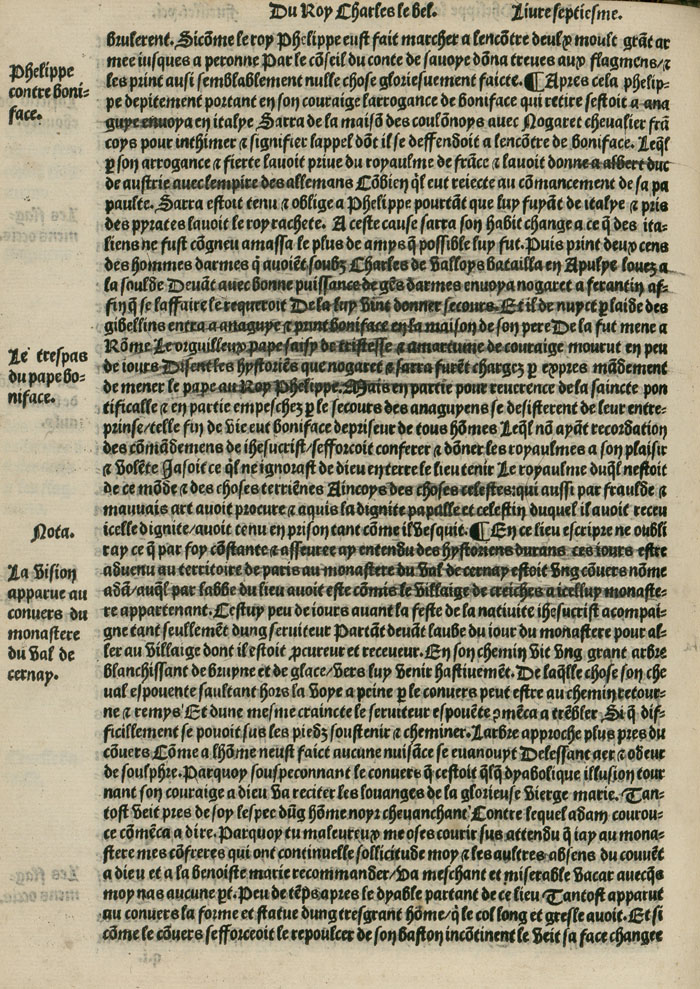 Du Roy Charles le bel. Liure septiesme.
brulerent. Sicõme le roy Phelippe eust fait marcher a lencõtre deulx moult grãt ar
mee iusques a peronne Par le cõseil du conte de sauoye dõna treues aux flagmens/ ⁊
les print ausi semblablement nulle chose gloriesuement faicte. ¶ Apres cela phelip-
pe depitement portant en son couraige larrogance de boniface qui retire sestoit a ana
guye enuoya en italye Sarra de la maisõ des coulõnoys auec Nogaret cheualier frã
coys pour inthimer ⁊ signifier lappel dõt il se deffendoit a lencõtre de boniface. Leq̃l
ꝑ son arrogance ⁊ fierte lauoit priue du royaulme de frãce ⁊ lauoit donne a albert duc
de austrie auec lempire des allemans Cõbien q̃l eut reiecte au cõmancement de sa pa
paulte. Sarra estoit tenu ⁊ oblige a Phelippe pourtãt que luy fuyãt de italye ⁊ pris
des pyrates lauoit le roy rachete. A ceste cause sarra son habit change a ce q̃ des ita-
liens ne fust cõgneu amassa le plus de amys q̃ possible luy fut. Puis print deux cens
des hommes darmes q̃ auoiẽt soubz Charles de Valloys batailla en Apulye louez a
la soulde Deuãt auec bonne puissance de gẽs darmes enuoya nogaret a ferantin af-
fin q̃ se laffaire le requeroit De la luy vint donner secours. Et il de nuyct ꝑ laide des
gibellins entra a anaguye ⁊ print boniface en la maison de son pere De la fut mene a
Rõme Le orguilleux pape saisy de tristesse ⁊ amartume de couraige mourut en peu
de iours Disent les hystoriẽs que nogaret ⁊ sarra furẽt chargez ꝑ expres mãdement
de mener le pape au Roy Phelippe. Mais en partie pour reuerence de la saincte pon
tificalle ⁊ en partie empeschez ꝑ le secours des anaguyens se desisterent de leur entre-
prinse/telle fin de vie eut boniface depriseur de tous hõmes Leq̃l nõ ayãt recordation
des cõmãdemens de ihesucrist/sefforcoit conferer ⁊ dõner les royaulmes a son plaisir
⁊ volẽte Jasoit ce q̃l ne ignorast de dieu en terre le lieu tenir Le royaulme duq̃l nestoit
de ce mõde ⁊ des choses terriẽnes Aincoys des choses celestes: qui aussi par fraulde ⁊
mauuais art auoit procure ⁊ aquis la dignite papalle et celestin duquel il auoit receu
icelle dignite/auoit tenu en prison tant cõme il vesquit. ¶ En ce lieu escripre ne oubli
ray ce q̃ par foy cõstante ⁊ asseuree ay entendu des hystoriens durans ces iours estre
aduenu au territoire de paris au monastere du Val de cernay estoit vng cõuers nõme
adã/auq̃l par labbe du lieu auoit este cõmis le villaige de creiches a icelluy monaste-
re appartenant. Cestuy peu de iours auant la feste de la natiuite ihesucrist acompai-
gne tant seullemẽt dung seruiteur Partãt deuãt laube du iour du monastere pour al-
ler au villaige dont il estoit ꝓcureur et receueur. En son chemin vit vng grant arbre
blanchissant de bruyne et de glace/vers luy venir hastiuemẽt. De laq̃lle chose son che
ual espouente saultant hors la voye a peine ꝑ le conuers peut estre au chemin retour-
ne ⁊ remys Et dune mesme craincte le seruiteur espouẽte ꝯmẽca a trẽbler. Si q̃ dif-
ficillement se pouoit sus les piedz soustenir ⁊ cheminer. Larbre approche plus pres du
cõuers Cõme a lhõme neust faict aucune nuisãce se euanouyt Delessant aer ⁊ odeur
de soulphre. Parquoy souspeconnant le conuers q̃ cestoit q̃lq̃ dyabolique illusion tour
nant son couraige a dieu va reciter les louanges de la glorieuse vierge marie. Tan-
tost veit pres de soy lespec dũg hõme noyr cheuanchant Contre lequel adam courou-
ce cõmẽca a dire. Parquoy tu maleureux me oses courir sus attendu q̃ iay au mona-
stere mes cõfreres qui ont continuelle sollicitude moy ⁊ les aultres absens du couuẽt
a dieu et a la benoiste marie recommander/va meschant et miserable vacar auecq̃s
moy nas aucune ꝑt. Peu de tẽps apres le dyable partant de ce lieu Tantost apparut
au conuers la forme et statue dung tresgrant hõme/q̃ le col long et gresle auoit. Et si
cõme le cõuers sefforceoit le repoulcer de son baston incõtinent le veit sa face changee
Phelippe
contre boni-
face.
Le trespas
du pape bo-
niface.
Nota.
La vision
apparue au
conuers du
monastere
du val de
cernay.